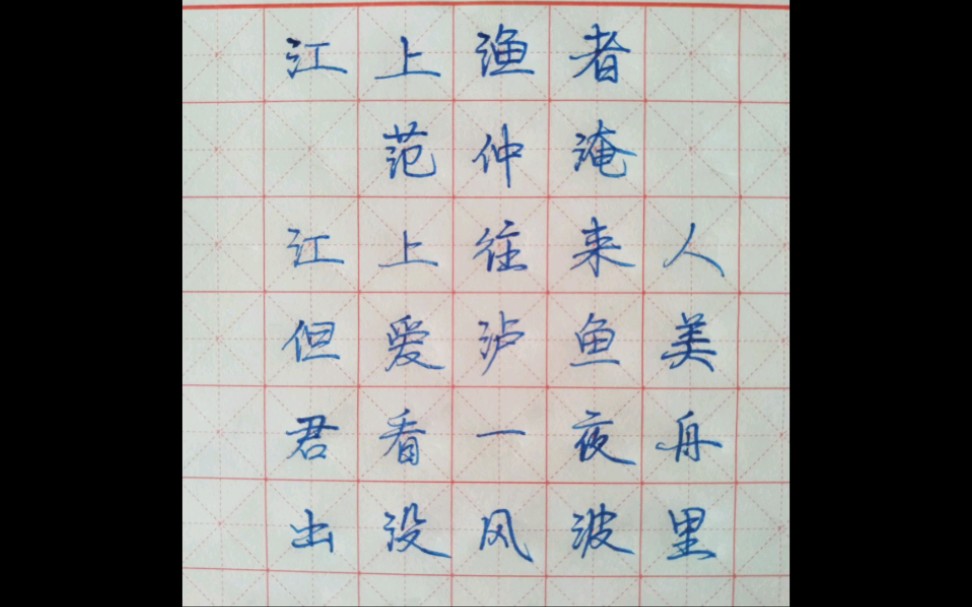 江上渔者
范仲淹
江上往来人
但爱泸鱼美
君看一夜舟
出没风波里